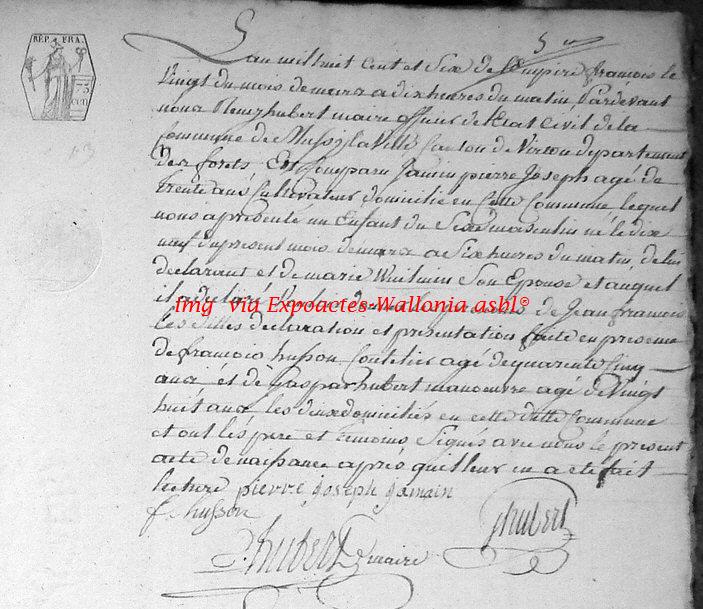 RÉP. FRA.
75
CEN
L'an mil huit Cent et Six de l'empire francois le
Vingt du mois de mars a dix heures du matin Pardevant
nous hubert maire officier de l'Etat Civil de la
Commune de Mussy la Ville Canton de Virton departement
des forets Est Comparu Jamin pierre Joseph agé de
trente ans Cultivateur domicilié en Cette Commune lequel
nous a presenté un Enfant du Sexe masculin né le dix
neuf du present mois de mars a Six heures du matin de lui
declarant et de marie Son Epouse et auquel
il a declaré Vouloir donner les prenoms de Jean francois
les dittes declaration et presentation faite en presence
de francois husson Coutelier agé de quarente Cinq
ans et de Gaspar hubert manoeuvre agé de Vingt
huit ans les deux domiciliés en cette ditte Commune
et ont les pere et temoins Signés avec nous le present
acte de naissance après qu'il leur en a eté fait
lecture pierre joseph jamain
f. husson
g hubert
hubert maire
img via Expoactes-Wallonia asbl©